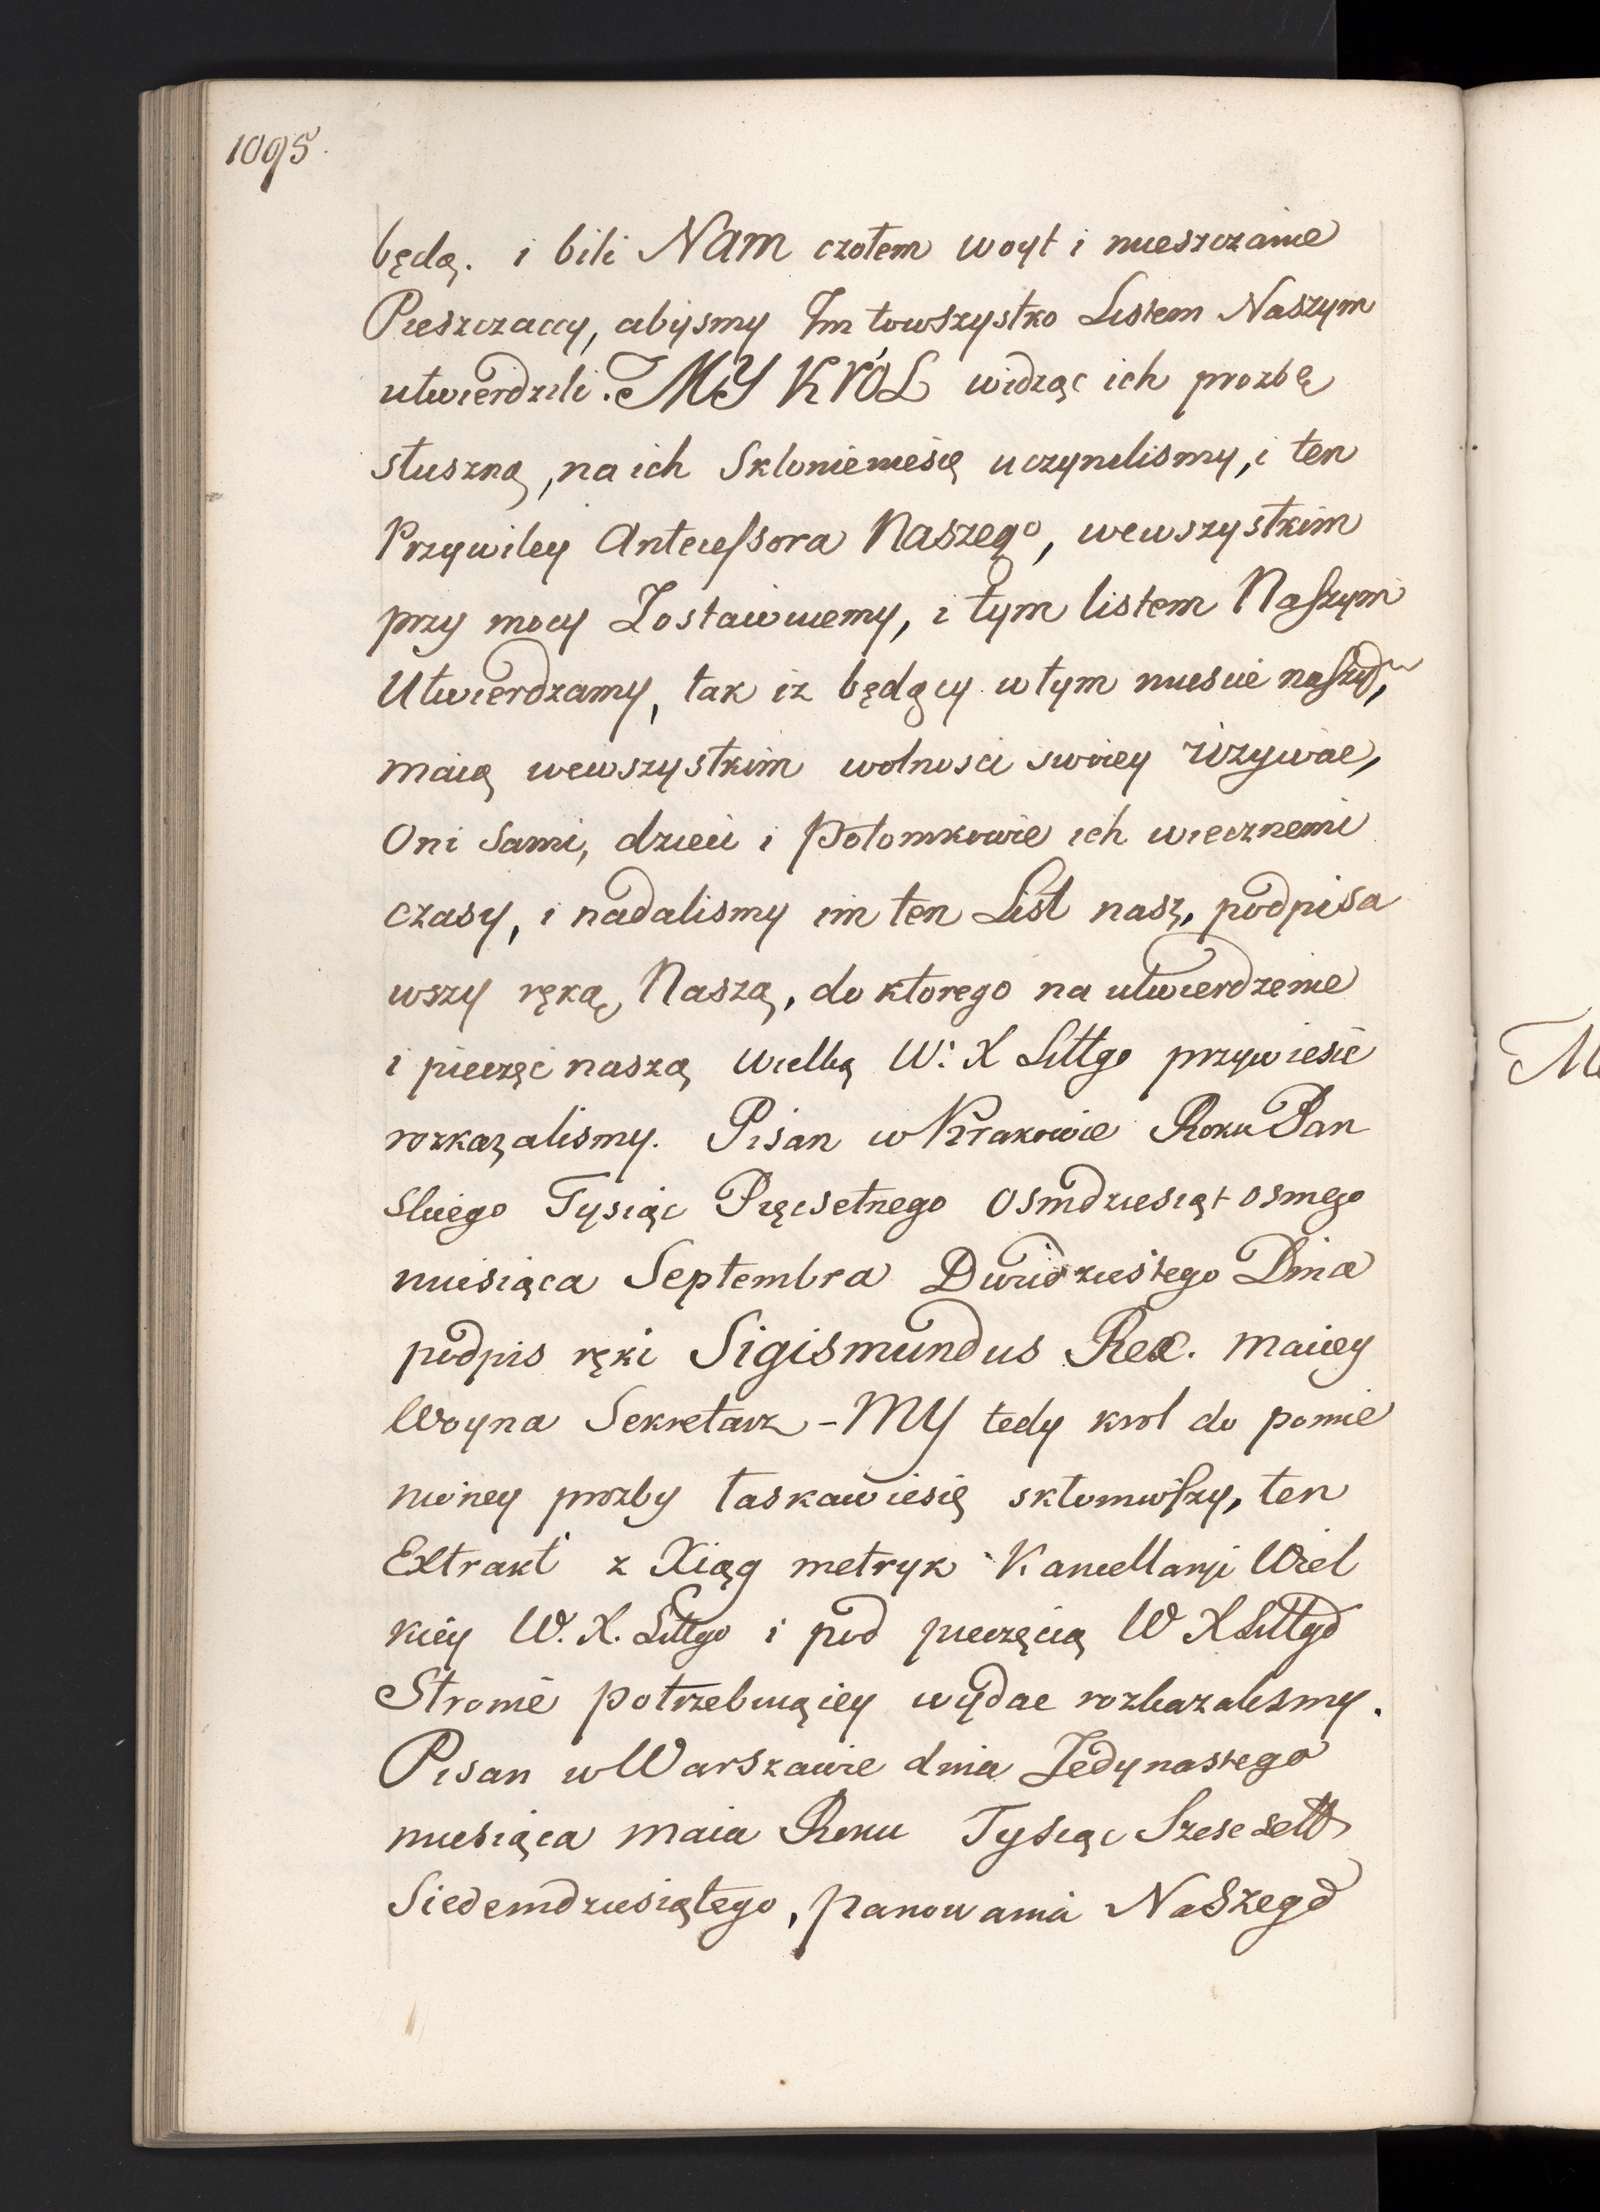 1095.
będą. i bili NAM czołem woyt i mieszczanie
Pieszczaccy, abysmy Im towszystko Listem Naszym
utwierdzili. MY KRÓL widząc ich prozbę
słuszną, na ich Skłonieniesię uczynilismy, i ten
Przywiley Antecessora Naszego, wewszystkim
przy mocy Zostawuiemy, i tym listem Naszym
Utwierdzamy, tak iz będący w tym miescie naszym,
maią wewszystkim wolnosci swoiey używac,
Oni Sami, dzieci i Potomkowie ich wiecznemi
czasy, i nadalismy im ten List nasz, podpisa
wszy ręką Naszą, do ktorego na utwierdzenie
i pieczęc naszą Wielką W. X Littgo przywiesic
rozkazalismy. Pisan w Krakowie Roku Pan
skiego Tysiąc Pięcsetnego Osmdziesiąt osmego
miesiąca Septembra Dwudziestego Dnia
podpis ręki Sigismundus Rex. Maciey
Woyna Sekretarz - MY tedy krol do pomie
nioney prozby łaskawiesię skłoniwszy, ten
Extrakt z Xiąg metryk Kancellaryi Wiel
kiey W. X. Littgo i pod pieczęcią W X Littgo
Stronie potrzebuiąciey wydac rozkazalismy.
Pisan w Warszawie dnia Jedynastego
miesiąca Maia Roku Tysiąc Szescsett
Siedemdziesiątego, panowania Naszego